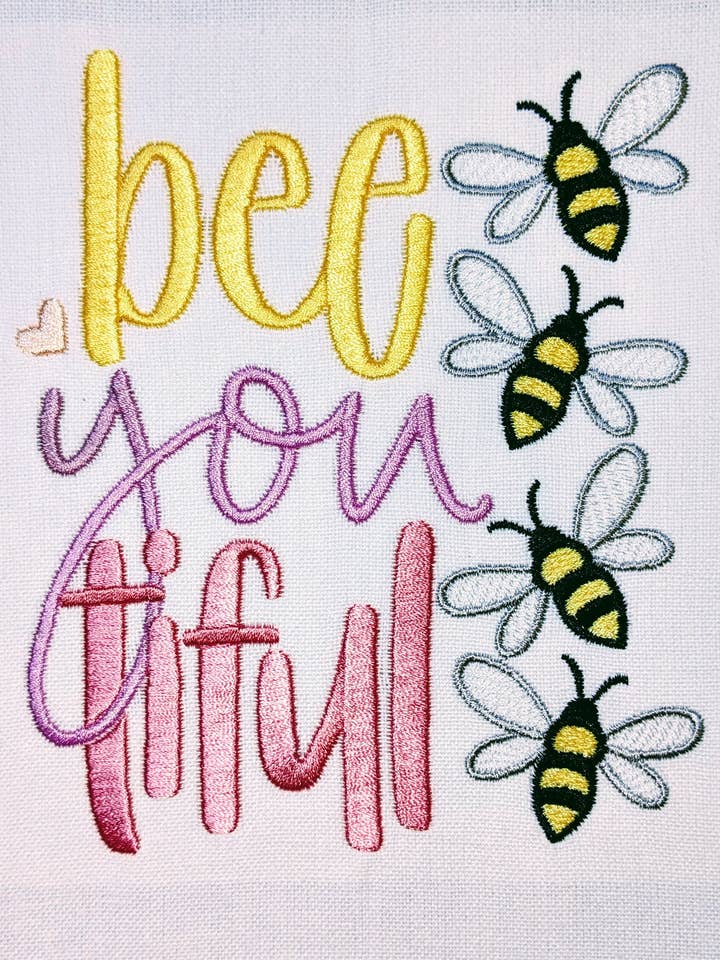 bee
you
tiful